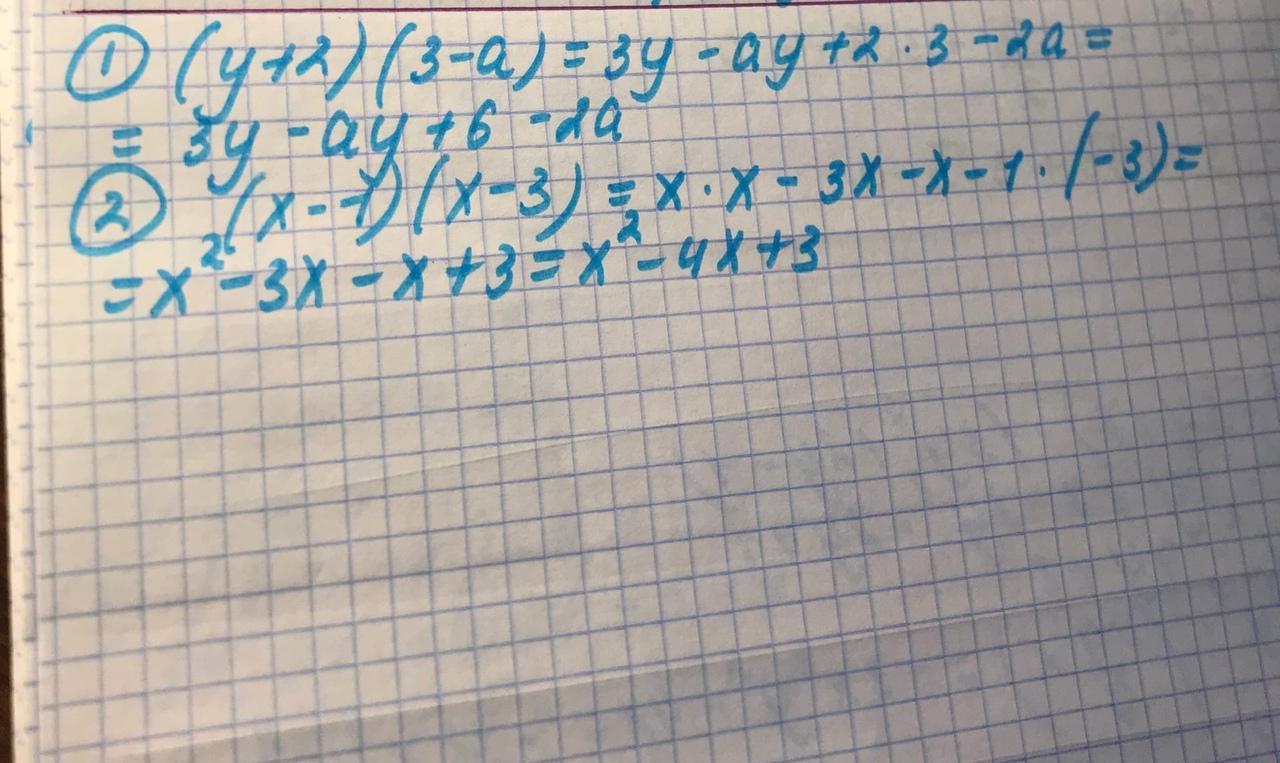 ① (y+2)(3-a) = 3y - ay + 2·3 - 2a =
= 3y - ay + 6 - 2a
② (x-1)(x-3) = x·x - 3x - x - 1·(-3) =
= x² - 3x - x + 3 = x² - 4x + 3